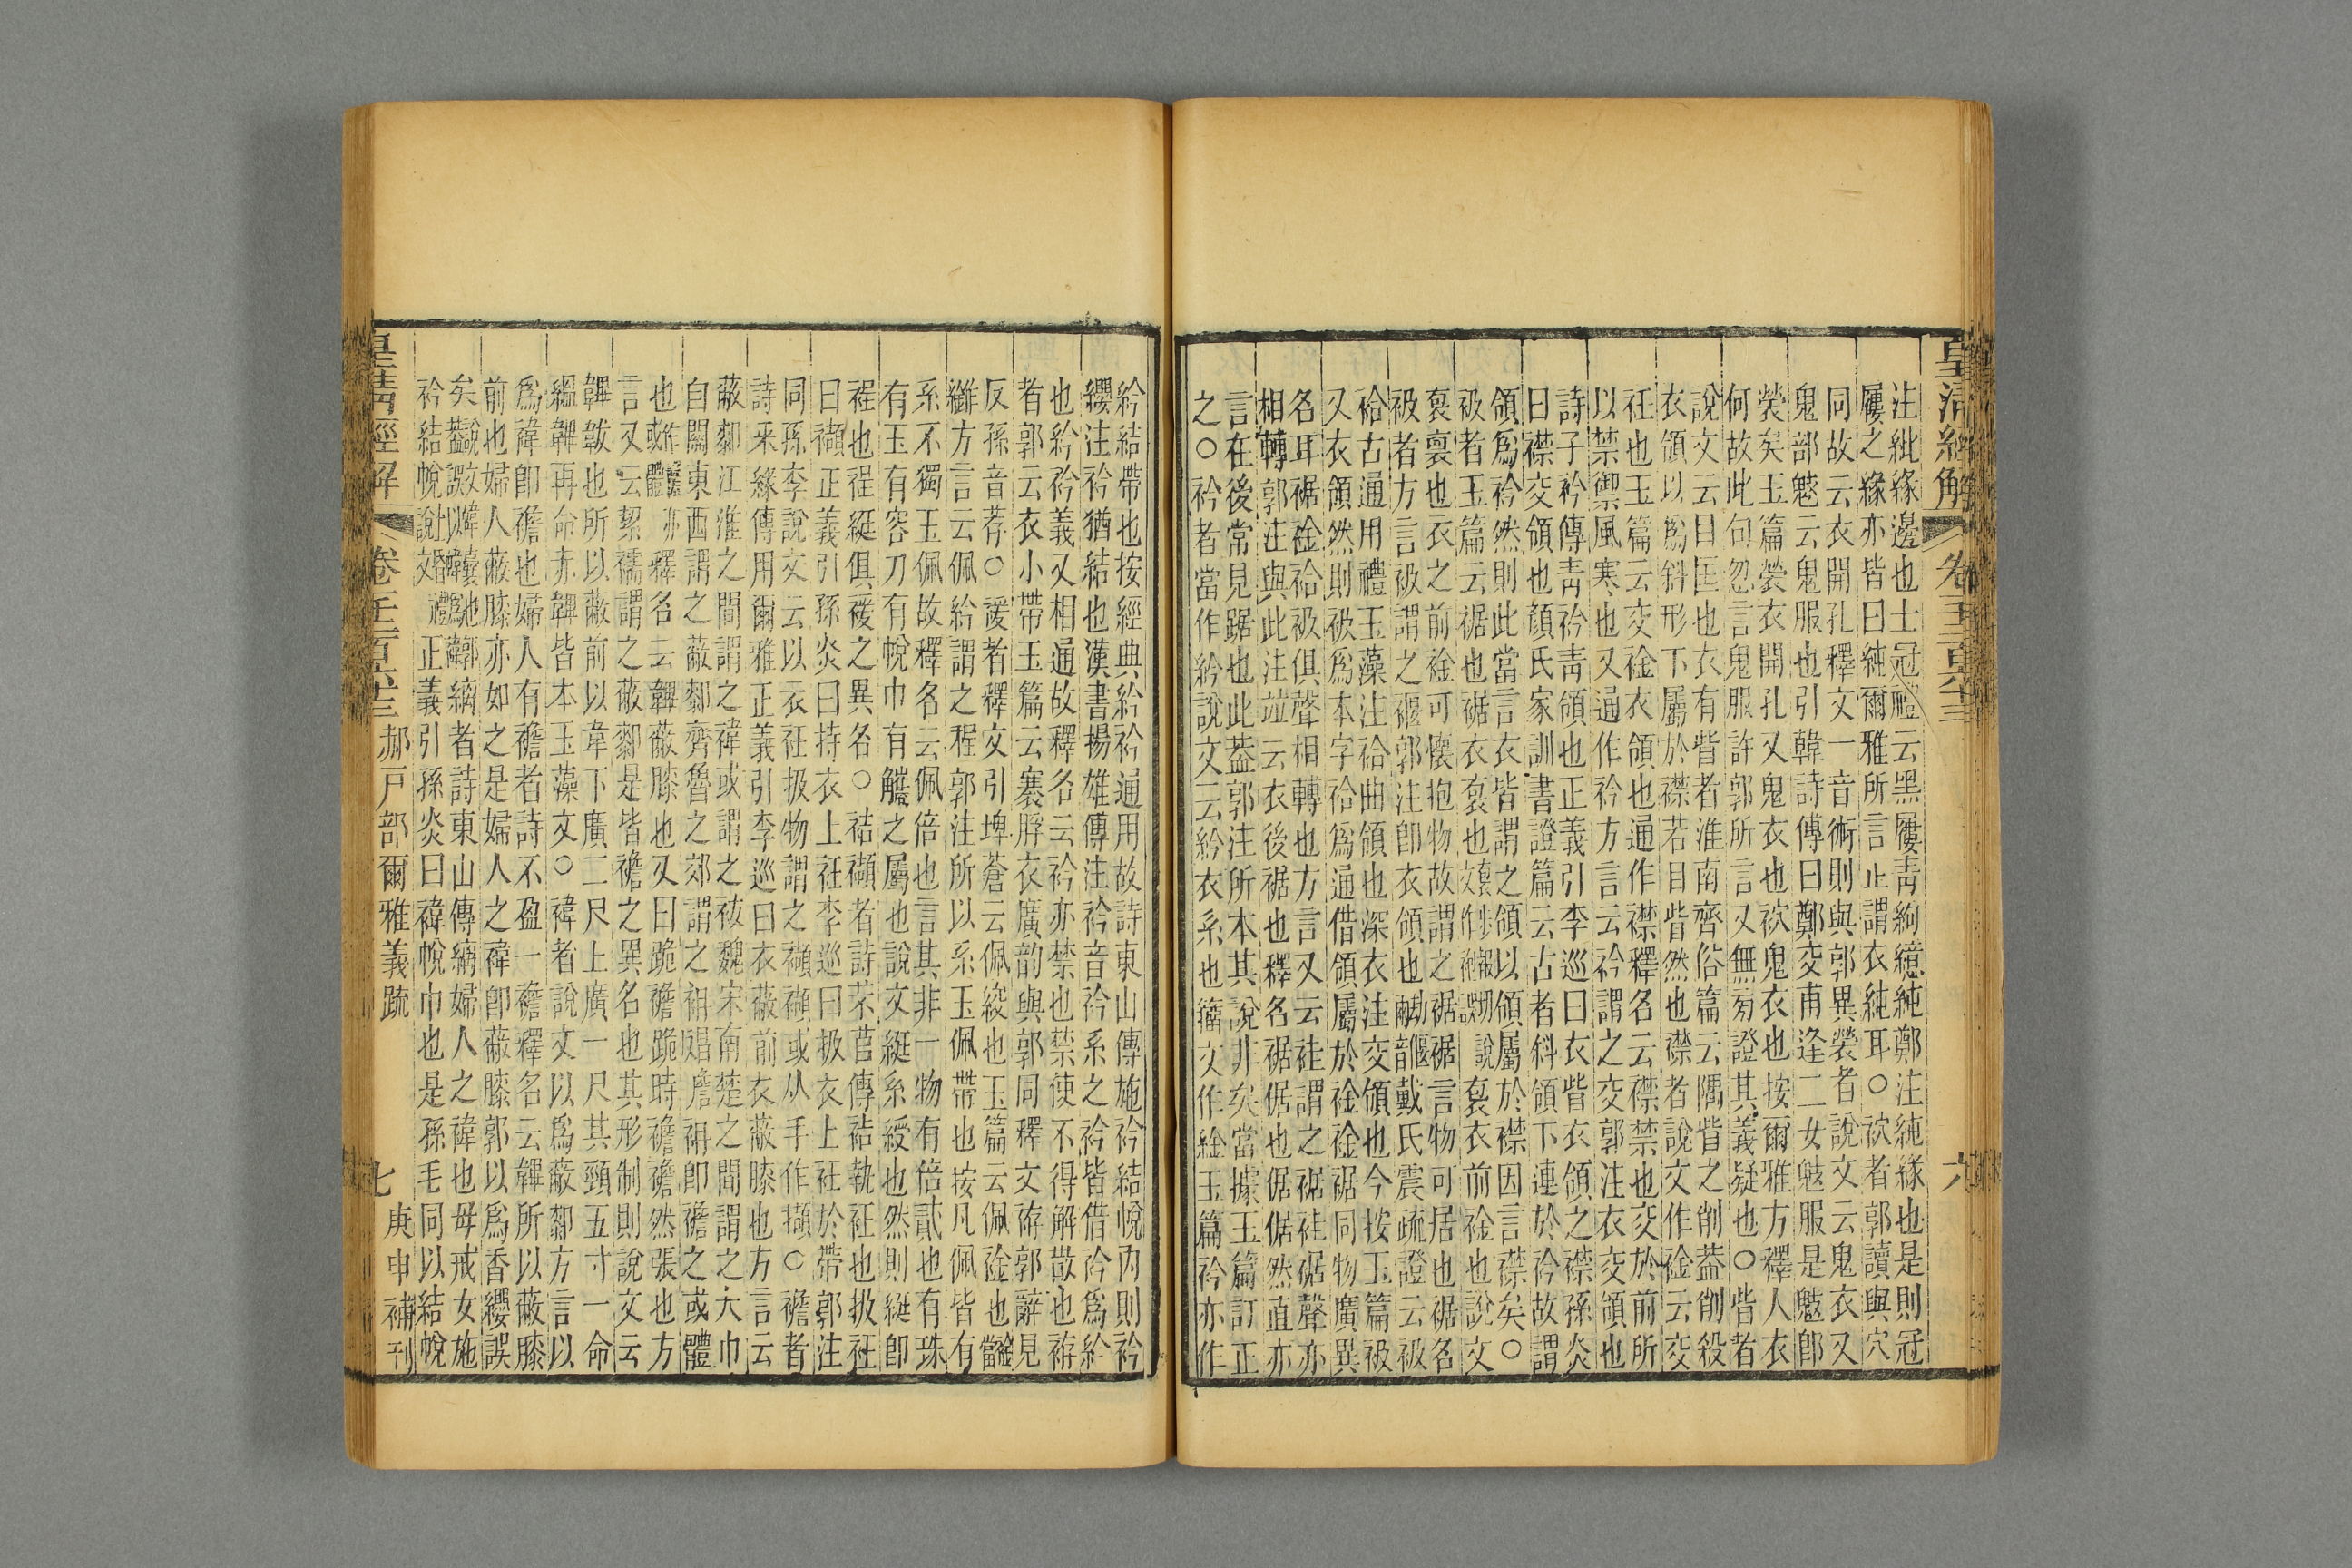 皇清經解 卷千二百六十三 六
注純緣邊也士冠禮云黑屨青絇繶純鄭注純緣也是則冠
屨之緣亦皆曰純爾雅所言止謂衣純耳○袕者郭讀與穴
同故云衣開孔釋文一音術則與郭異褮者說文云鬼衣又
鬼部魃云鬼服也引韓詩傳曰鄭交甫逢二女魃服是魃卽
褮矣玉篇褮衣開孔又鬼衣也袕鬼衣也按爾雅方釋人衣
何故此句忽言鬼服許郭所言又無㫄證其義疑也○眥者
說文云目匡也衣有眥者淮南齊俗篇云隅眥之削葢削殺
衣領以爲斜形下屬於襟若目眥然也襟者說文作䘳云交
衽也玉篇云交䘳衣領也通作襟釋名云襟禁也交於前所
以禁禦風寒也又通作衿方言云衿謂之交郭注衣交領也
詩子衿傳靑衿靑領也正義引李巡曰衣眥衣領之襟孫炎
曰襟交領也顔氏家訓書證篇云古者斜領下連於衿故謂
領爲衿然則此當言衣皆謂之領以領屬於襟因言襟矣○
衱者玉篇云裾也裾衣袌也說袌衣前䘳也說文
袌褱也衣之前䘳可懷抱物故謂之裾裾言物可居也裾名
衱者方言衱謂之褗郭注卽衣領也戴氏震疏證云衱
袷古通用禮玉藻注袷曲領也深衣注交領也今按玉篇衱
又衣領然則衱爲本字袷爲通借領屬於䘳䘳裾同物廣異
名耳裾䘳袷衱俱聲相轉也方言又云袿謂之裾袿裾聲亦
相轉郭注與此注竝云衣後裾也釋名裾倨也倨倨然直亦
言在後常見踞也此葢郭注所本其說非矣當據玉篇訂正
之○衿者當作紟說文云紟衣系也籀文作䘳玉篇衿亦作
紟結帶也按經典紟衿通用故詩東山傳施衿結帨內則衿
纓注衿猶結也漢書揚雄傳注衿音衿系之衿皆借衿爲紟
也紟衿義又相通故釋名云衿亦禁也禁使不得解散也袸
者郭云衣小帶玉篇云褰脬衣廣韵與郭同釋文袸郭辭見
反孫音荐○䘠者釋文引埤蒼云佩絞也玉篇云佩䘳也
方言云佩紟謂之裎郭注所以系玉佩帶也按凡佩皆有
系不獨玉佩故釋名云佩倍也言其非一物有倍貳也有珠
有玉有容刀有帨巾有觿之屬也說文綎系綬也然則綎卽
裎也裎綎俱䘠之異名○袺襭者詩芣苢傳袺執衽也扱衽
曰襭正義引孫炎曰持衣上衽李巡曰扱衣上衽於帶郭注
同孫李說文云以衣衽扱物謂之襭襭或从手作擷○襜者
詩采綠傳用爾雅正義引李巡曰衣蔽前衣蔽膝也方言云
蔽䣛江淮之閒謂之褘或謂之祓魏宋南楚之閒謂之大巾
自關東西謂之蔽䣛齊魯之郊謂之衻䄌䄡衻卽襜之或體
也釋名云韠蔽膝也又曰跪襜跪時襜襜然張也方
言又云絜襦謂之蔽䣛是皆襜之異名也其形制則說文云
韠韍也所以蔽前以韋下廣二尺上廣一尺其頸五寸一命
縕韠再命赤韠皆本玉藻文○褘者說文以爲蔽䣛方言以
爲褘卽襜也婦人有襜者詩不盈一襜釋名云韠所以蔽膝
前也婦人蔽膝亦如之是婦人之褘卽蔽膝郭以爲香纓誤
矣縭者詩東山傳縭婦人之褘也毋戒女施
衿結帨正義引孫炎曰褘帨巾也是孫毛同以結帨
皇清經解 卷千二百六十三 郝戶部爾雅義疏 七 庚申補刊